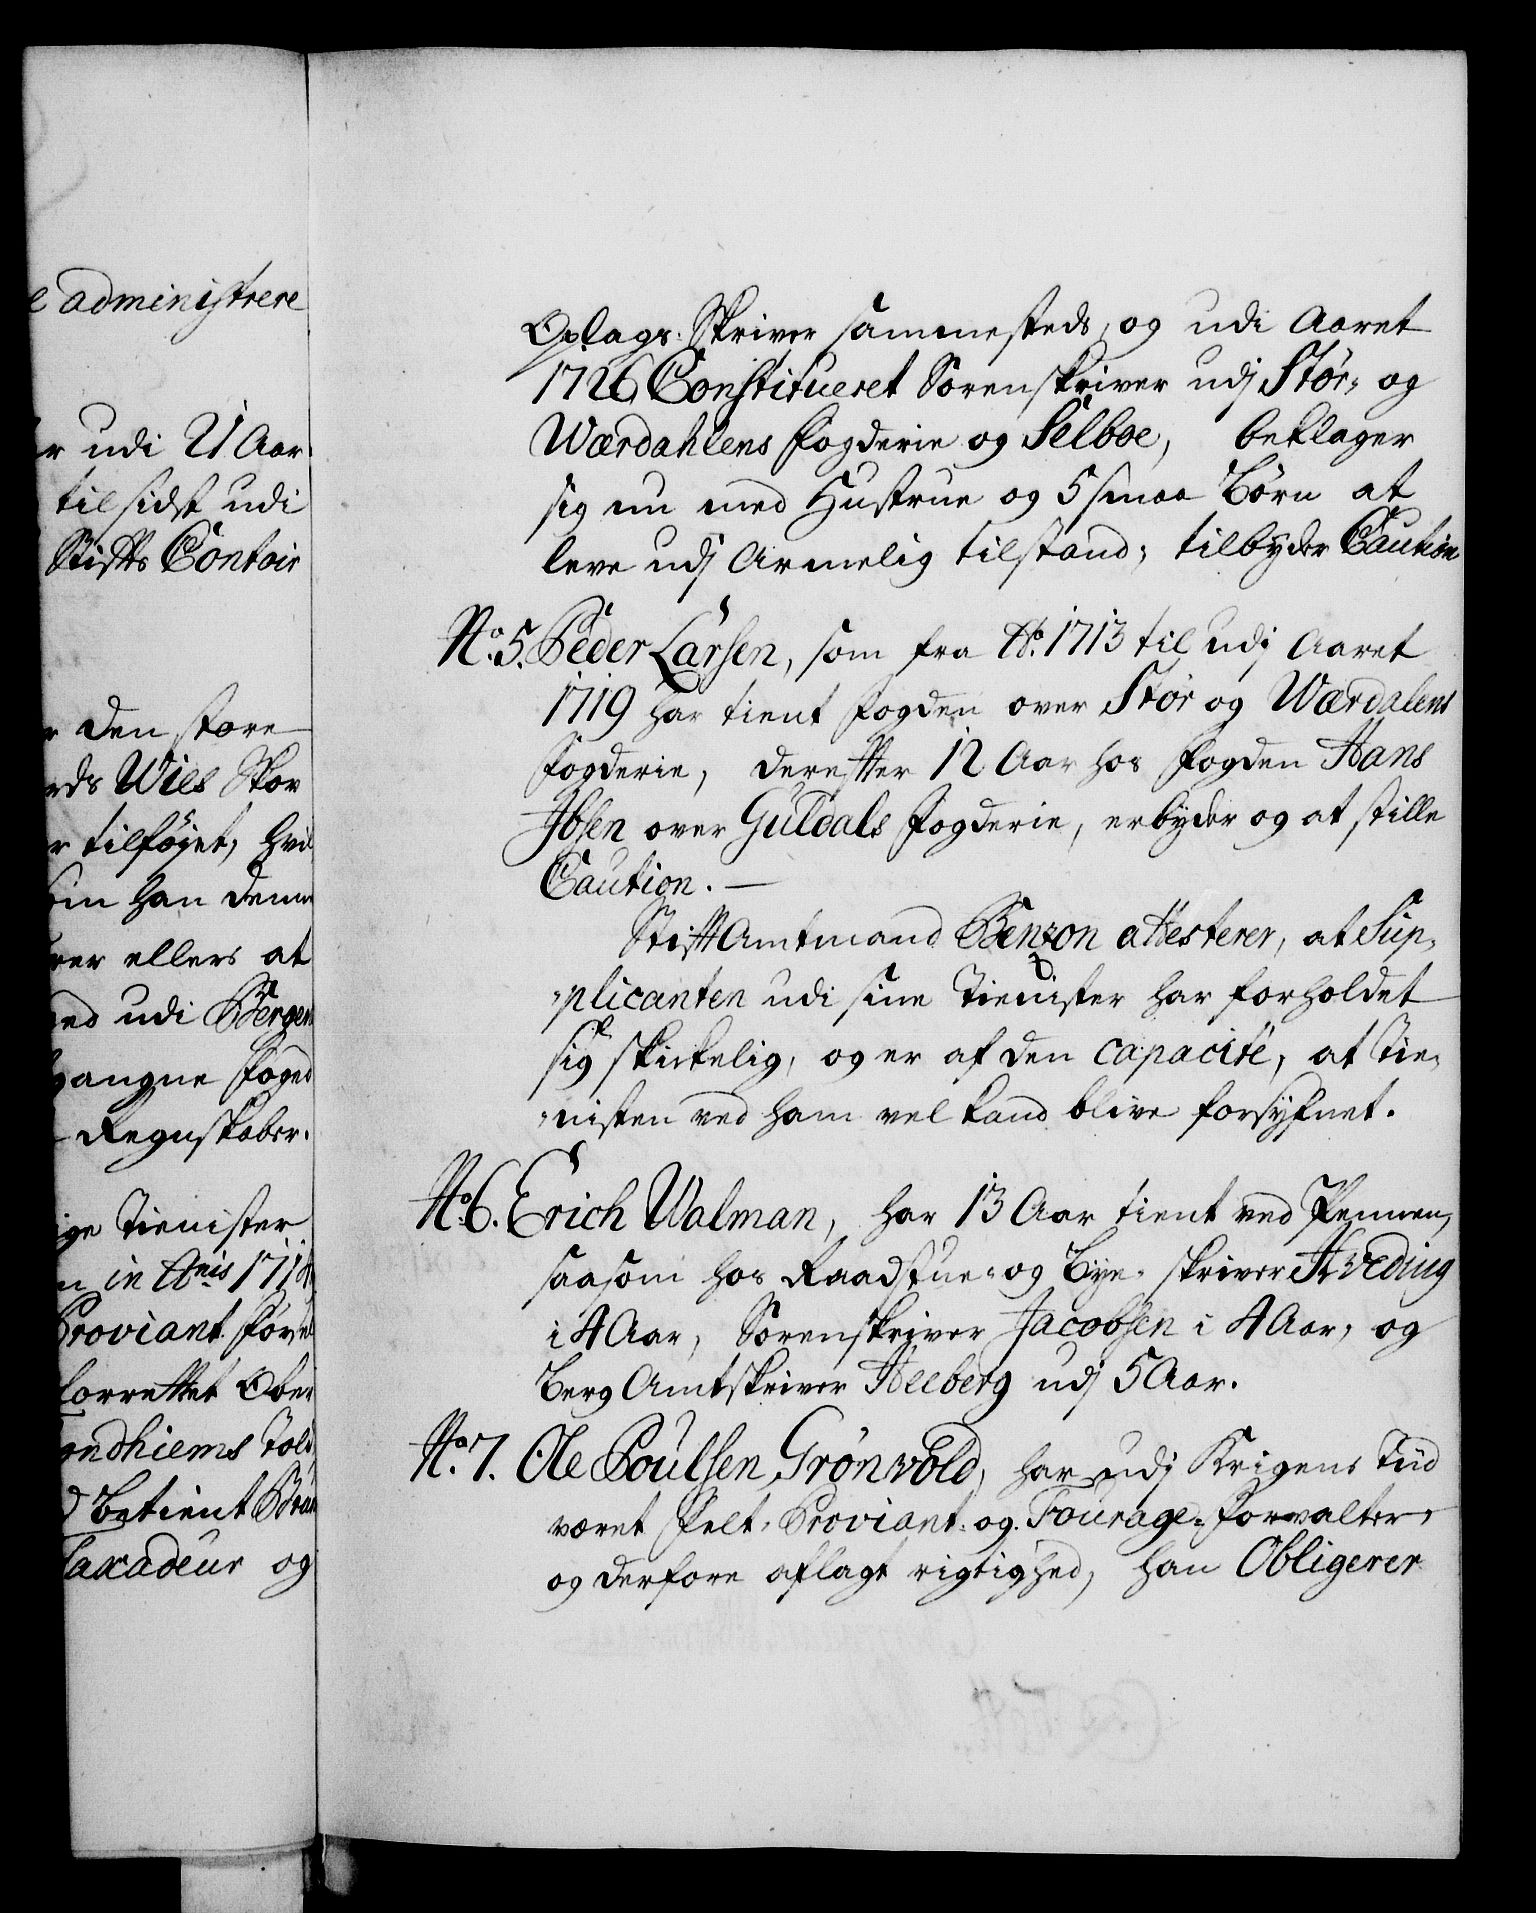 e administrere
r udi 21 Aar
til sidst udi
Stifts Contoir
r den store
rds Wiels Skov
r tilføyet, hvil
han denne
rer ellers at
ed udi Bergen
gangne foged
Regnskaber.
ige Tienister
n in Anis 1714
Proviant forval
forrettet Ober
ndhiems Told
d betient
Taxadeur og
Oplags-Skriver sammesteds, og udi Aaret
1726 Constitueret Sorenskriver udj Stør- og
Wærdahlens fogderie og Selboe, beklager
sig nu med Hustrue og 5 smaa Børn at
leve udj Armelig tilstand; tilbyder Caution
No. 5. Peder Larsen, som fra Ao. 1713 til udj Aaret
1719 har tient fogden over Stør og Wærdalens
fogderie, derefter 12 Aar hos fogden Hans
Jbsen over Guldals fogderie, erbyder og at stille
Caution. —
Stift Amtmand Benzon attesterer, at Sup-
-plicanten udi sine Tienister har forholdet
sig skickelig, og er af den capacité, at Tie-
-nisten ved ham vel kand blive forsyfnet.
No. 6. Erich Walman, har 13 Aar tient ved Pennen,
saasom hos Raadstue- og Bye-skriver Hveding
i 4 Aar, Sorenskriver Jacobsen i 4 Aar, og
Berg Amtskriver Heeberg udj 5 Aar.
No. 7. Ole Poulsen Grønvold, har udj Krigens Tiid
været Felt-Proviant- og Fourage-forvalter,
og derfore aflagt rigtighed, han Obligerer